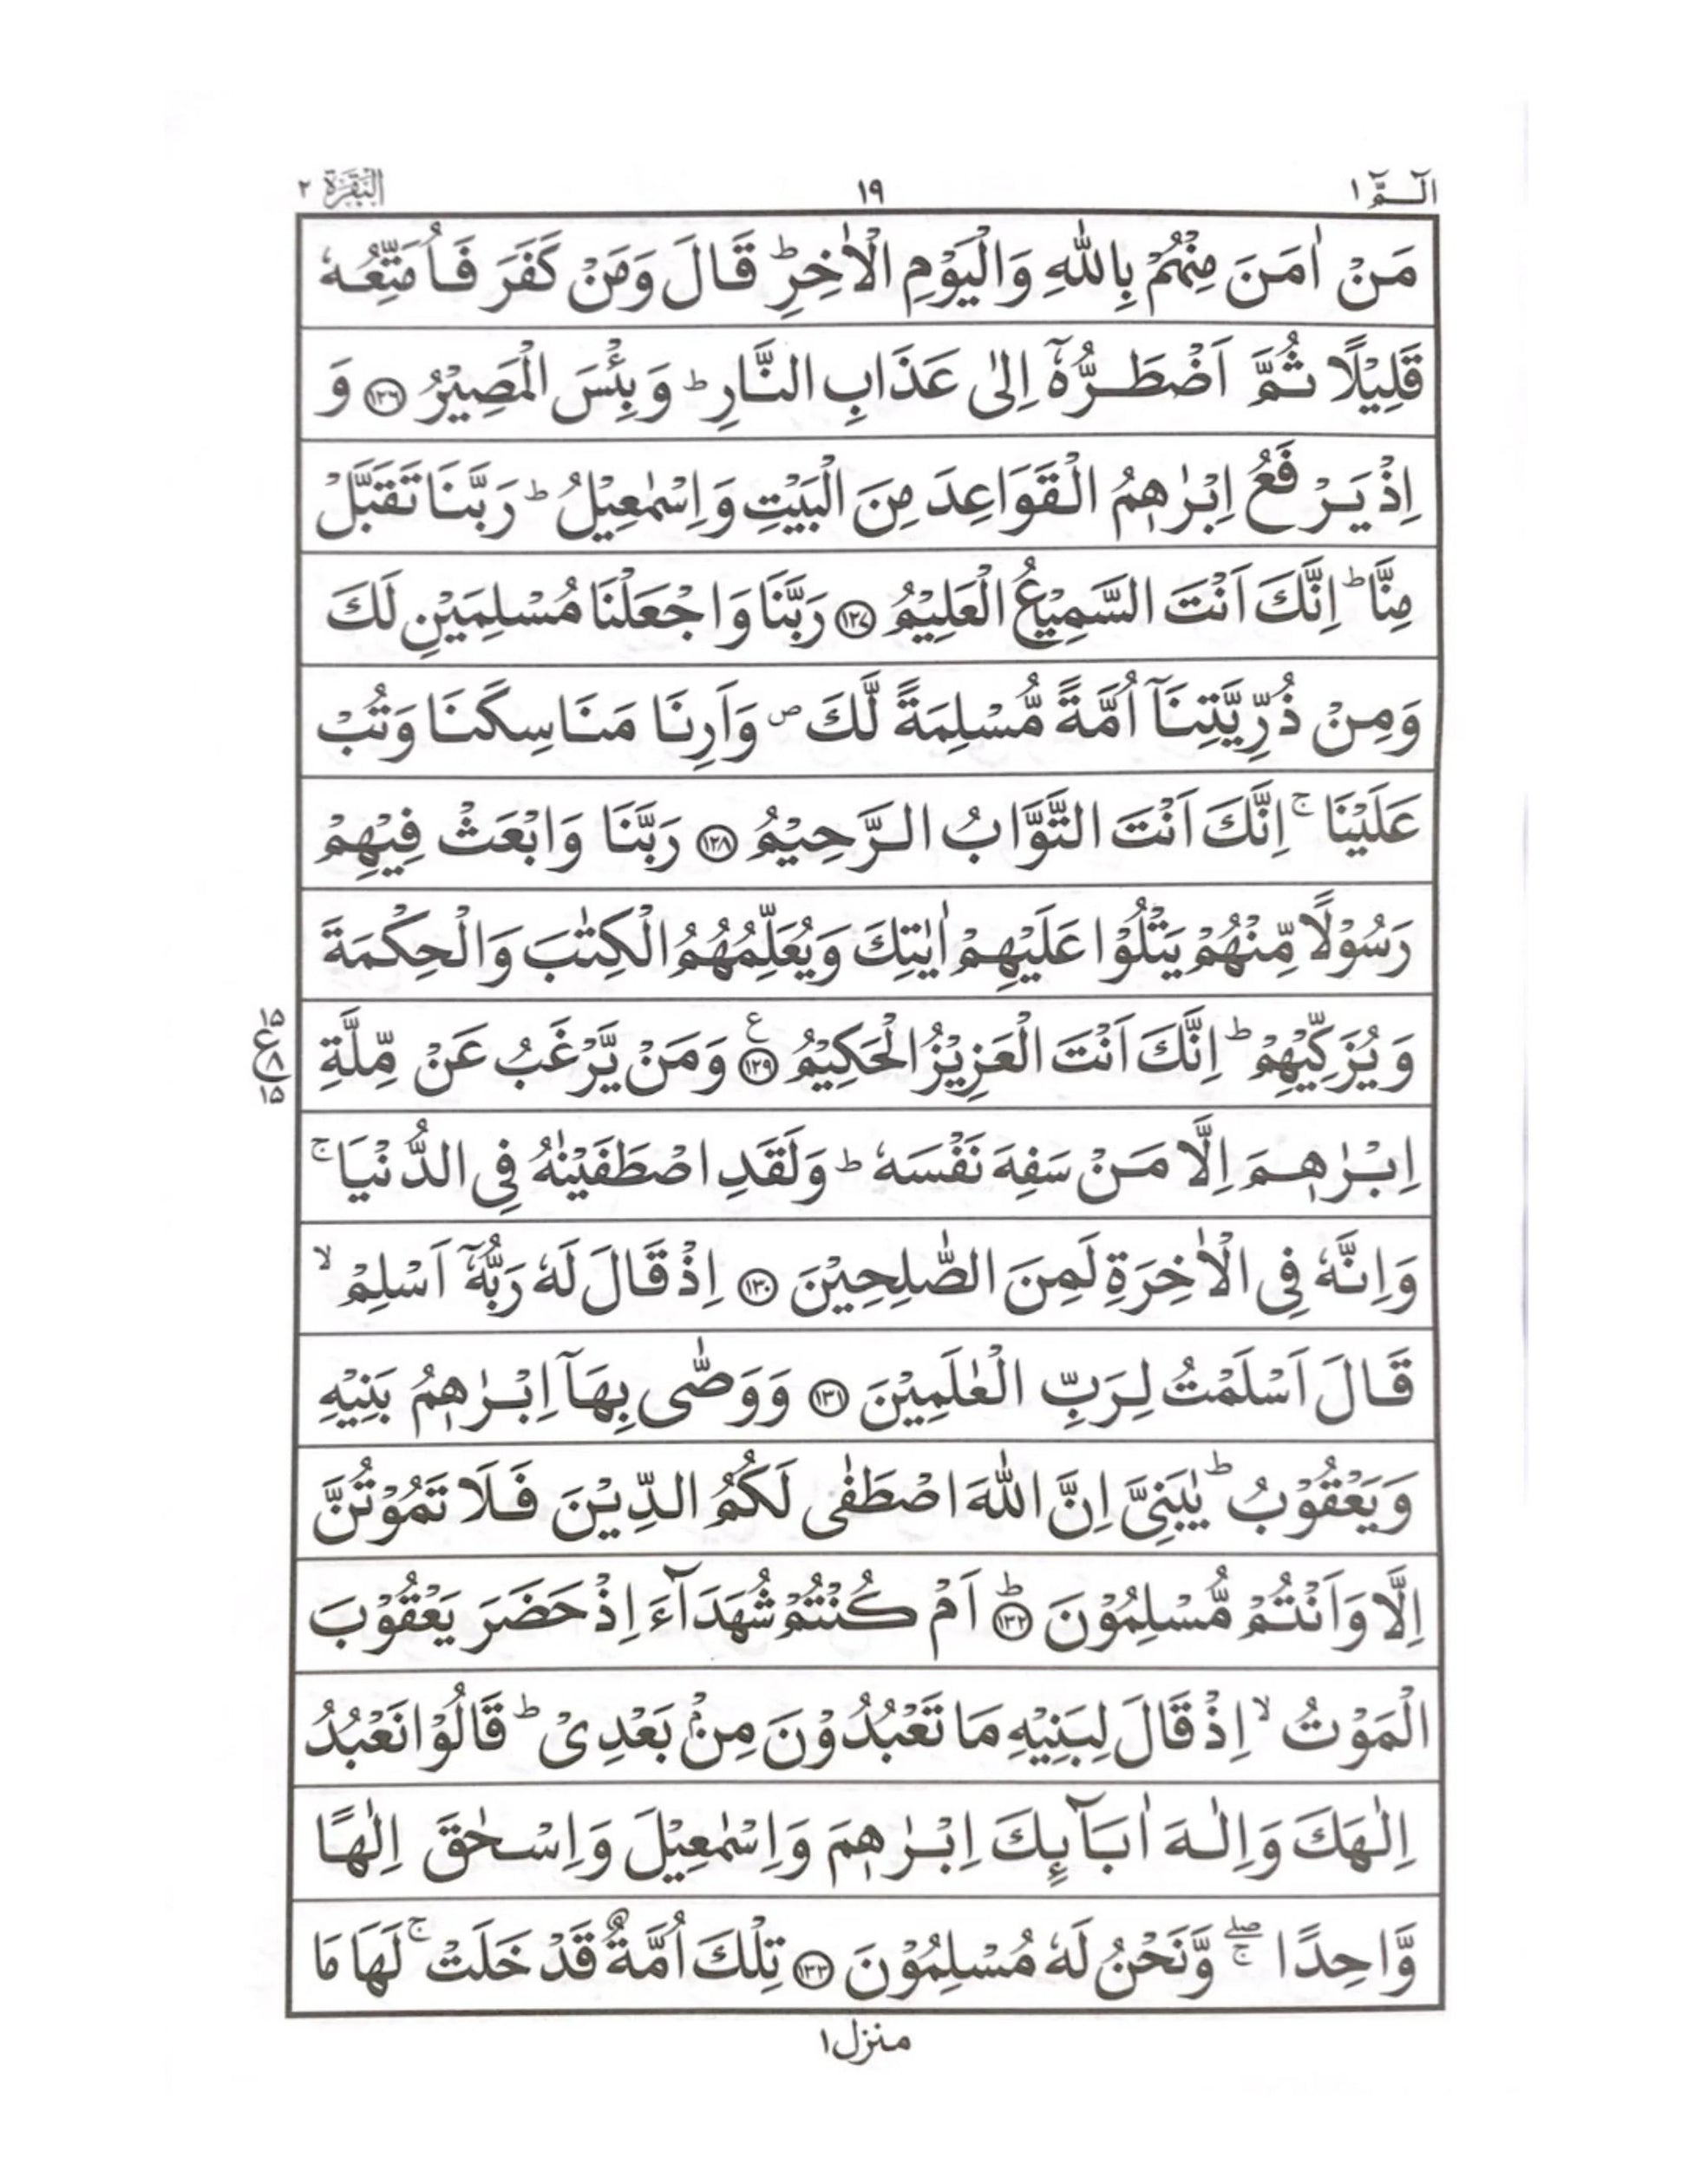 الٓـمّٓ ١ ١٩ البقرة ٢
مَنْ اٰمَنَ مِنْهُمْ بِاللّٰهِ وَالْيَوْمِ الْاٰخِرِ ؕ قَالَ وَمَنْ كَفَرَ فَاُمَتِّعُهٗ
قَلِيْلًا ثُمَّ اَضْطَرُّهٗۤ اِلٰى عَذَابِ النَّارِ ؕ وَبِئْسَ الْمَصِيْرُ ﴿١٢٦﴾ وَ
اِذْ يَرْفَعُ اِبْرٰهٖمُ الْقَوَاعِدَ مِنَ الْبَيْتِ وَاِسْمٰعِيْلُ ؕ رَبَّنَا تَقَبَّلْ
مِنَّا ؕ اِنَّكَ اَنْتَ السَّمِيْعُ الْعَلِيْمُ ﴿١٢٧﴾ رَبَّنَا وَاجْعَلْنَا مُسْلِمَيْنِ لَكَ
وَمِنْ ذُرِّيَّتِنَاۤ اُمَّةً مُّسْلِمَةً لَّكَ ص وَاَرِنَا مَنَاسِكَنَا وَتُبْ
عَلَيْنَا ۚ اِنَّكَ اَنْتَ التَّوَّابُ الرَّحِيْمُ ﴿١٢٨﴾ رَبَّنَا وَابْعَثْ فِيْهِمْ
رَسُوْلًا مِّنْهُمْ يَتْلُوْا عَلَيْهِمْ اٰيٰتِكَ وَيُعَلِّمُهُمُ الْكِتٰبَ وَالْحِكْمَةَ
وَيُزَكِّيْهِمْ ؕ اِنَّكَ اَنْتَ الْعَزِيْزُ الْحَكِيْمُ ﴿١٢٩﴾ ع وَمَنْ يَّرْغَبُ عَنْ مِّلَّةِ
١٥ ع ٨ ١٥
اِبْرٰهٖمَ اِلَّا مَنْ سَفِهَ نَفْسَهٗ ؕ وَلَقَدِ اصْطَفَيْنٰهُ فِى الدُّنْيَا ۚ
وَاِنَّهٗ فِى الْاٰخِرَةِ لَمِنَ الصّٰلِحِيْنَ ﴿١٣٠﴾ اِذْ قَالَ لَهٗ رَبُّهٗۤ اَسْلِمْ ۙ
قَالَ اَسْلَمْتُ لِرَبِّ الْعٰلَمِيْنَ ﴿١٣١﴾ وَوَصّٰى بِهَاۤ اِبْرٰهٖمُ بَنِيْهِ
وَيَعْقُوْبُ ؕ يٰبَنِىَّ اِنَّ اللّٰهَ اصْطَفٰى لَكُمُ الدِّيْنَ فَلَا تَمُوْتُنَّ
اِلَّا وَاَنْتُمْ مُّسْلِمُوْنَ ؕ ﴿١٣٢﴾ اَمْ كُنْتُمْ شُهَدَآءَ اِذْ حَضَرَ يَعْقُوْبَ
الْمَوْتُ ۙ اِذْ قَالَ لِبَنِيْهِ مَا تَعْبُدُوْنَ مِنْۢ بَعْدِىْ ؕ قَالُوْا نَعْبُدُ
اِلٰهَكَ وَاِلٰهَ اٰبَآئِكَ اِبْرٰهٖمَ وَاِسْمٰعِيْلَ وَاِسْحٰقَ اِلٰهًا
وَّاحِدًا ۖۚ وَّنَحْنُ لَهٗ مُسْلِمُوْنَ ﴿١٣٣﴾ تِلْكَ اُمَّةٌ قَدْ خَلَتْ ۚ لَهَا مَا
منزل ١